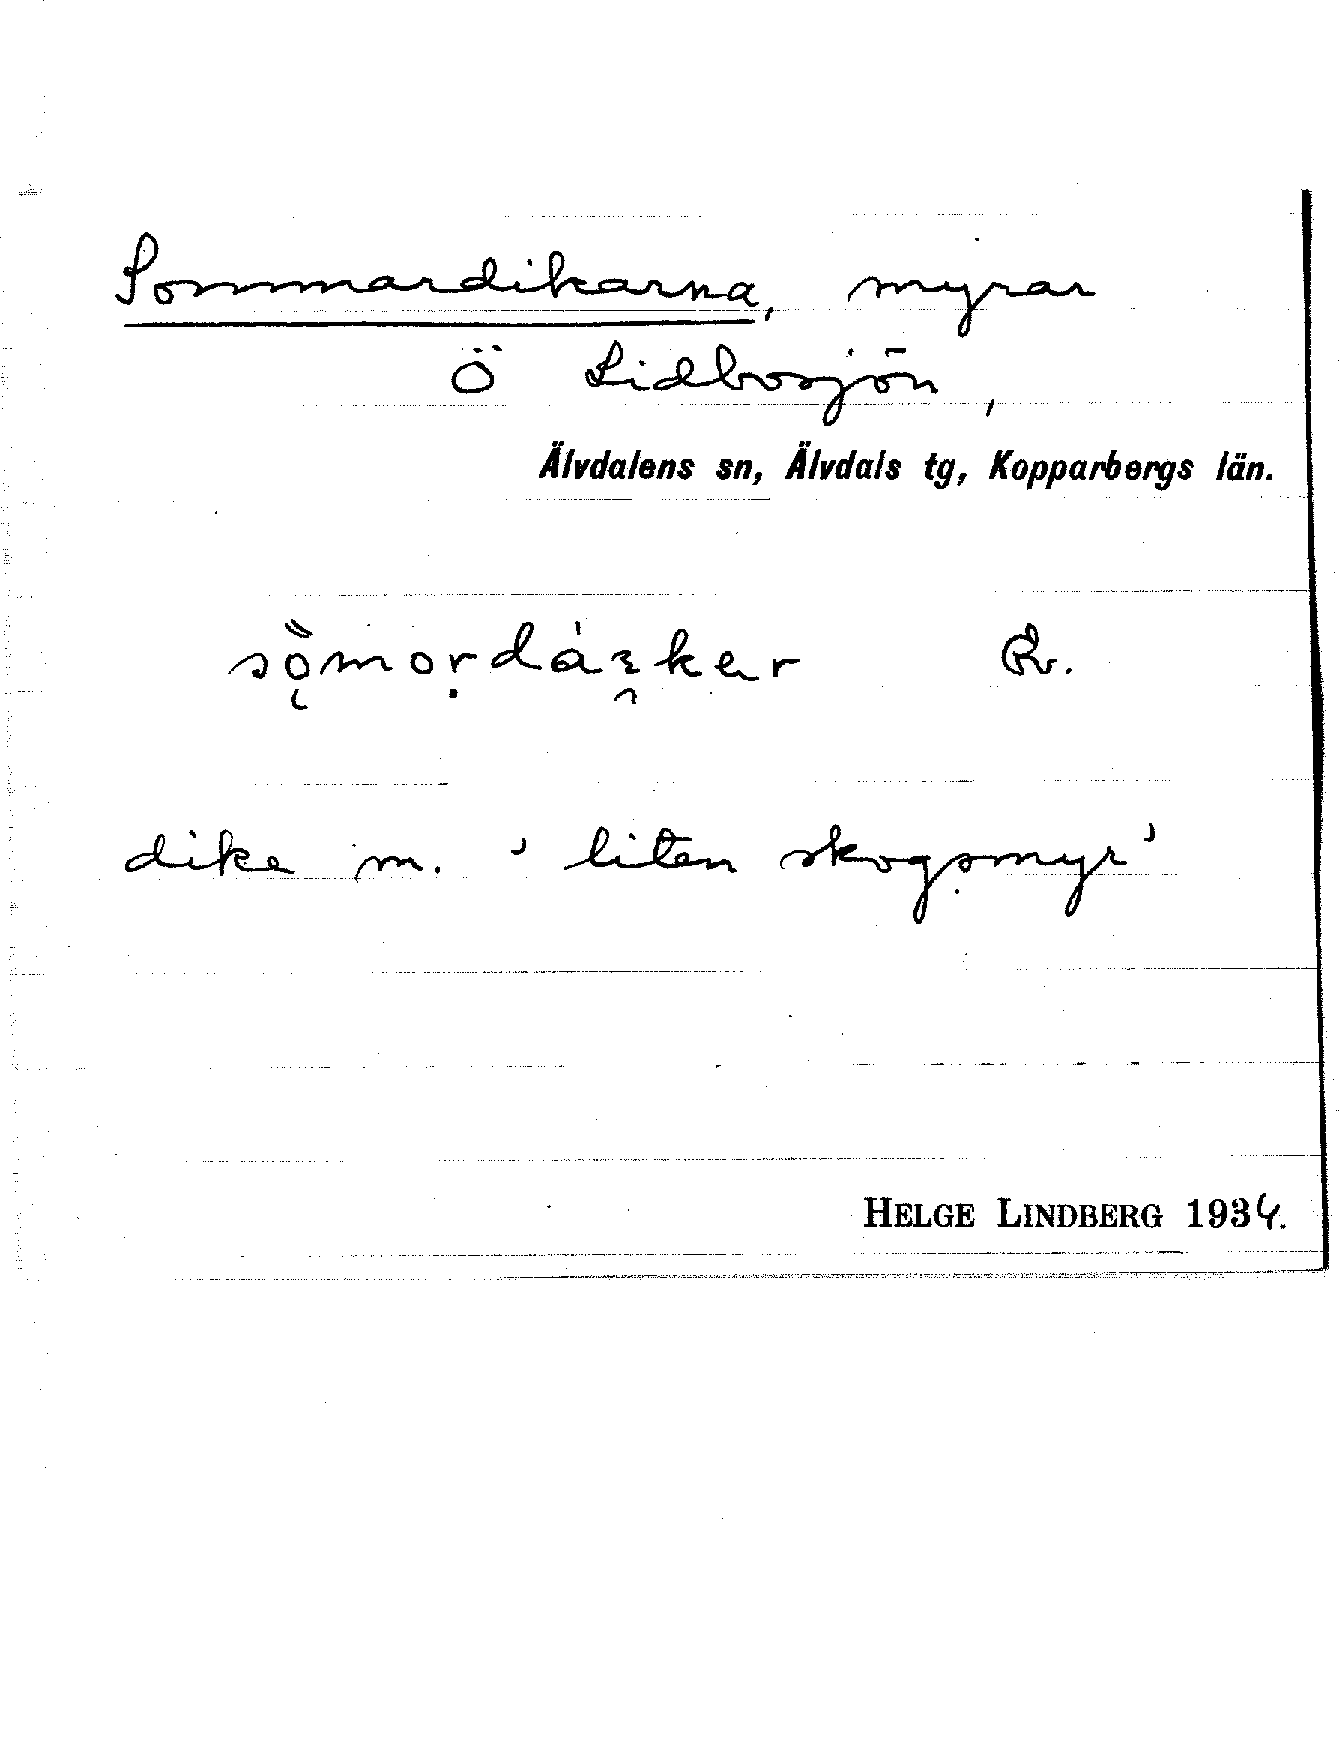 Sommardikarna, myrar
Ö Lidbosjön,
Älvdalens sn, Älvdals tg, Kopparbergs län.
R.
dike m. 'liten skogsmyr'
HELGE LINDBERG 1934.